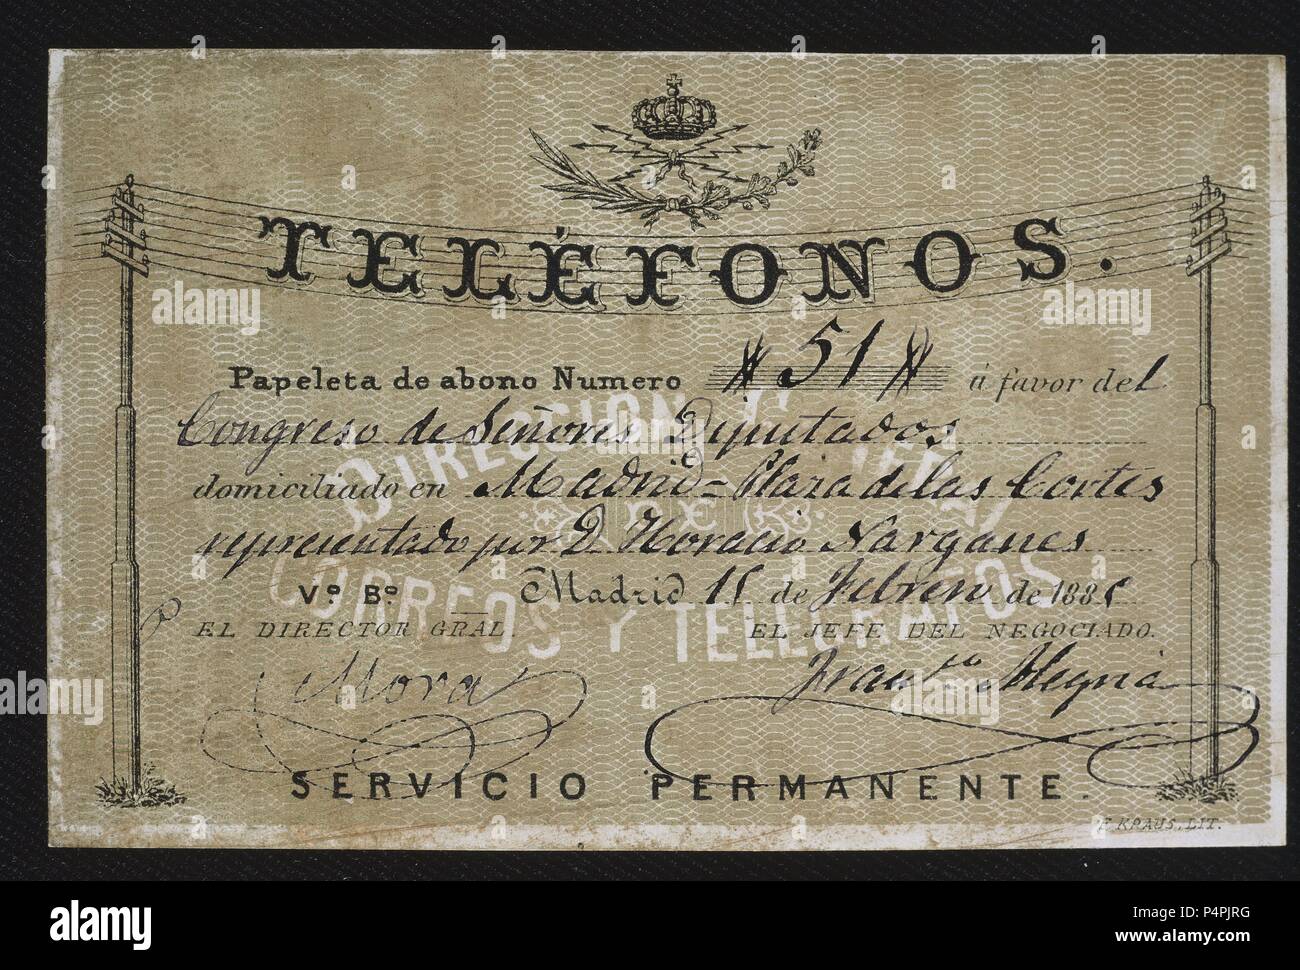 TELÉFONOS.
Papeleta de abono Numero 51 á favor del
Congreso de Señores Diputados
domiciliado en Madrid - Plaza de las Cortes
representado por D. Horacio Narganes
Vº Bº Madrid 15 de Febrero de 1885
EL DIRECTOR GRAL. EL JEFE DEL NEGOCIADO.
Mora Franco. Alegria
SERVICIO PERMANENTE.
F. KRAUS, LIT.
DIRECCION GENERAL
DE
CORREOS Y TELEGRAFOS
alamy
Image ID: P4PJRG
www.alamy.com